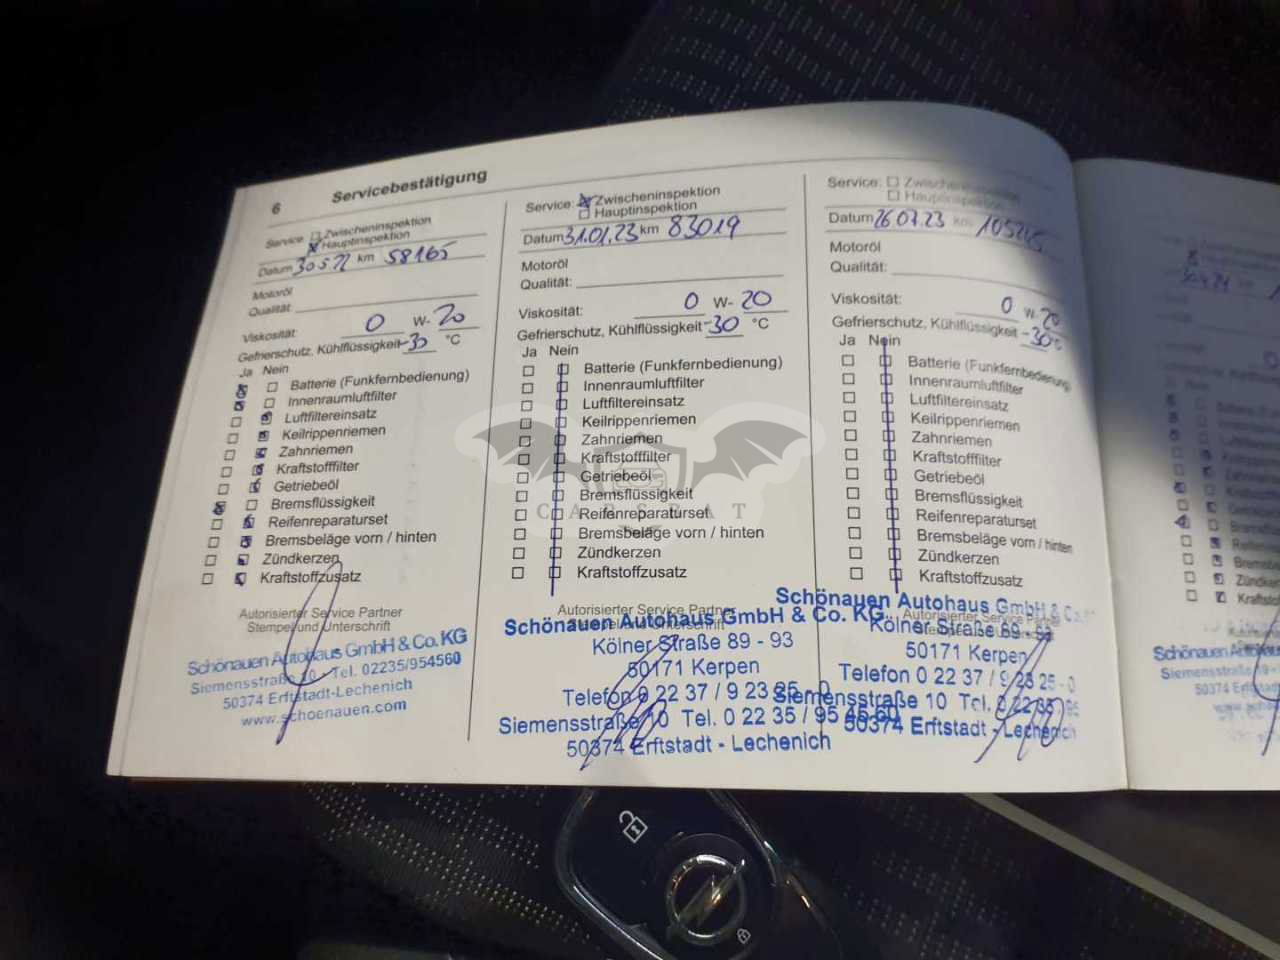 6 Servicebestätigung
Service: Zwischeninspektion
Hauptinspektion
Datum 30.5.22 km 58165
Motoröl
Qualität:
Viskosität: 0 W- 20
Gefrierschutz, Kühlflüssigkeit -30 °C
Ja Nein
Batterie (Funkfernbedienung)
Innenraumluftfilter
Luftfiltereinsatz
Keilrippenriemen
Zahnriemen
Kraftstofffilter
Getriebeöl
Bremsflüssigkeit
Reifenreparaturset
Bremsbeläge vorn / hinten
Zündkerzen
Kraftstoffzusatz
Autorisierter Service Partner
Stempel und Unterschrift
Schönauen Autohaus GmbH & Co. KG
Siemensstraße 10 - Tel. 02235/954560
50374 Erftstadt-Lechenich
www.schoenauen.com
Service: Zwischeninspektion
Hauptinspektion
Datum 31.01.23 km 83019
Motoröl
Qualität:
Viskosität: 0 W- 20
Gefrierschutz, Kühlflüssigkeit -30 °C
Ja Nein
Batterie (Funkfernbedienung)
Innenraumluftfilter
Luftfiltereinsatz
Keilrippenriemen
Zahnriemen
Kraftstofffilter
Getriebeöl
Bremsflüssigkeit
Reifenreparaturset
Bremsbeläge vorn / hinten
Zündkerzen
Kraftstoffzusatz
Autorisierter Service Partner
Schönauen Autohaus GmbH & Co. KG
Kölner Straße 89 - 93
50171 Kerpen
Telefon 0 22 37 / 9 23 25 - 0
Siemensstraße 10 Tel. 0 22 35 / 95 45 60
50374 Erftstadt - Lechenich
Service: Zwischeninspektion
Hauptinspektion
Datum 26.07.23 km
Motoröl
Qualität:
Viskosität: 0 W- 20
Gefrierschutz, Kühlflüssigkeit -30°
Ja Nein
Batterie (Funkfernbedienung)
Innenraumluftfilter
Luftfiltereinsatz
Keilrippenriemen
Zahnriemen
Kraftstofffilter
Getriebeöl
Bremsflüssigkeit
Reifenreparaturset
Bremsbeläge vorn / hinten
Zündkerzen
Kraftstoffzusatz
Schönauen Autohaus GmbH & Co.
Kölner Straße 89 - 93
50171 Kerpen
Telefon 0 22 37 / 9 23 25 - 0
Siemensstraße 10 Tel. 0 22 35 / 95
50374 Erftstadt - Lechenich
CARSBAT